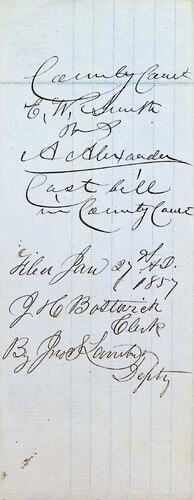 County Court
E. W. Smith
vs
A Alexander
Cost bill
in County Court
Filed Jan 27th A.D.
1857
J H Bostwick
Clerk
By Jno S
Depty